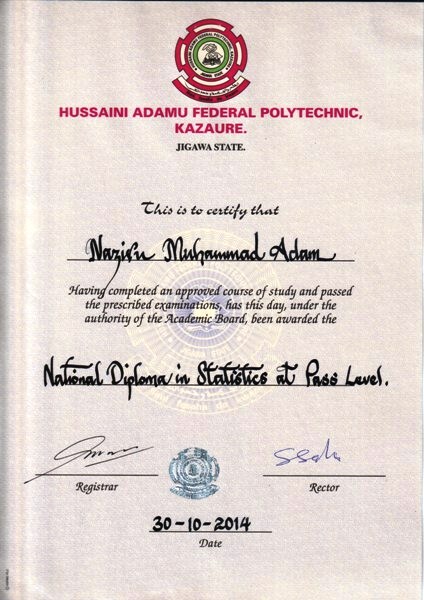 HUSSAINI ADAMU FEDERAL POLYTECHNIC,
KAZAURE.
JIGAWA STATE.
This is to certify that
Nazifu Muhammad Adam
Having completed an approved course of study and passed
the prescribed examinations, has this day, under the
authority of the Academic Board, been awarded the
National Diploma in Statistics at Pass Level.
Registrar
Rector
30-10-2014
Date